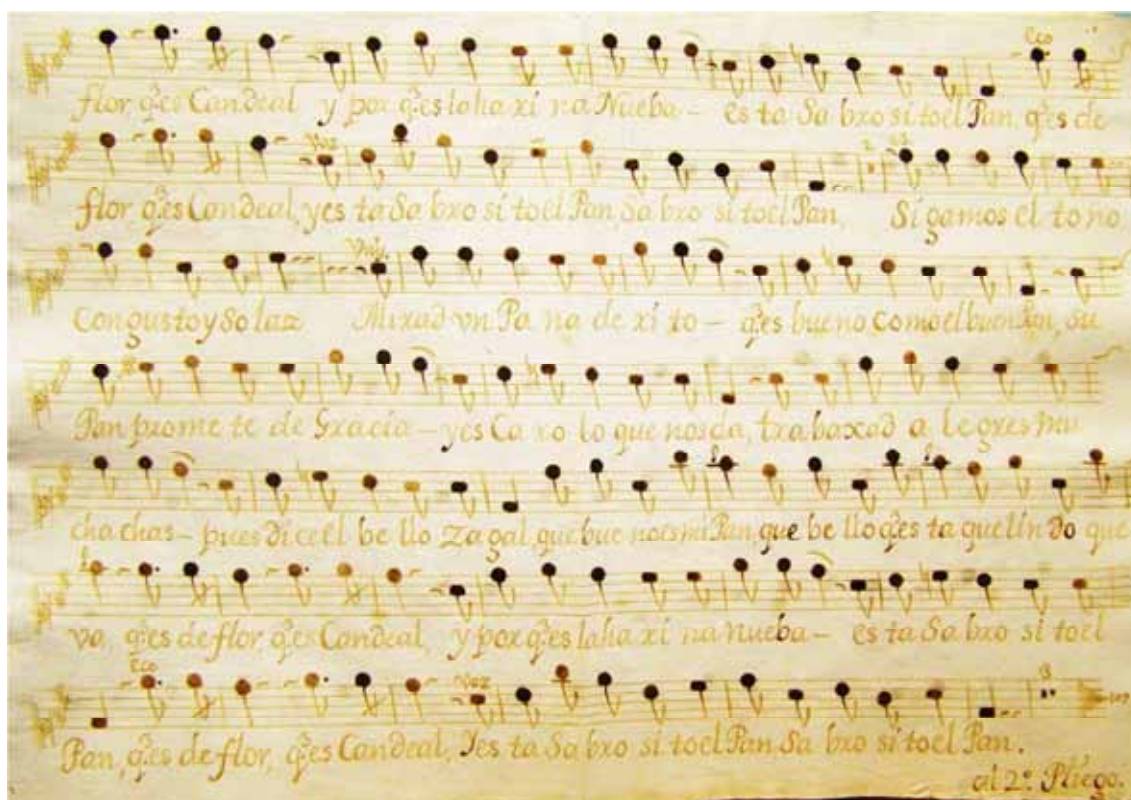 Eco
flor, q̃.es Candeal y por q̃.es la ha xi na Nueba – es ta Sa bro si toel Pan, q̃.es de
Voz
flor, q̃.es Candeal, yes ta Sa bro si toel Pan, Sa bro si toel Pan, Si gamos el to no,
Con gus to y So laz Mirad vn Pa na de ri to – q̃.es bue no como el buen Pan, su
Pan prome te de Gracia – yes Ca ro lo que nos da, tra ba xad a le gres mu
cha chas – pues di ce el be llo Zagal, que bue noes mi Pan que be llo q̃.es ta que lin do que
va, q̃.es de flor, q̃.es Candeal, y por q̃.es la ha xi na Nueba – es ta Sa bro si toel
Eco Voz
Pan, q̃.es de flor, q̃.es Candeal, Yes ta Sa bro si toel Pan, Sa bro si toel Pan.
al 2º. Pliego.